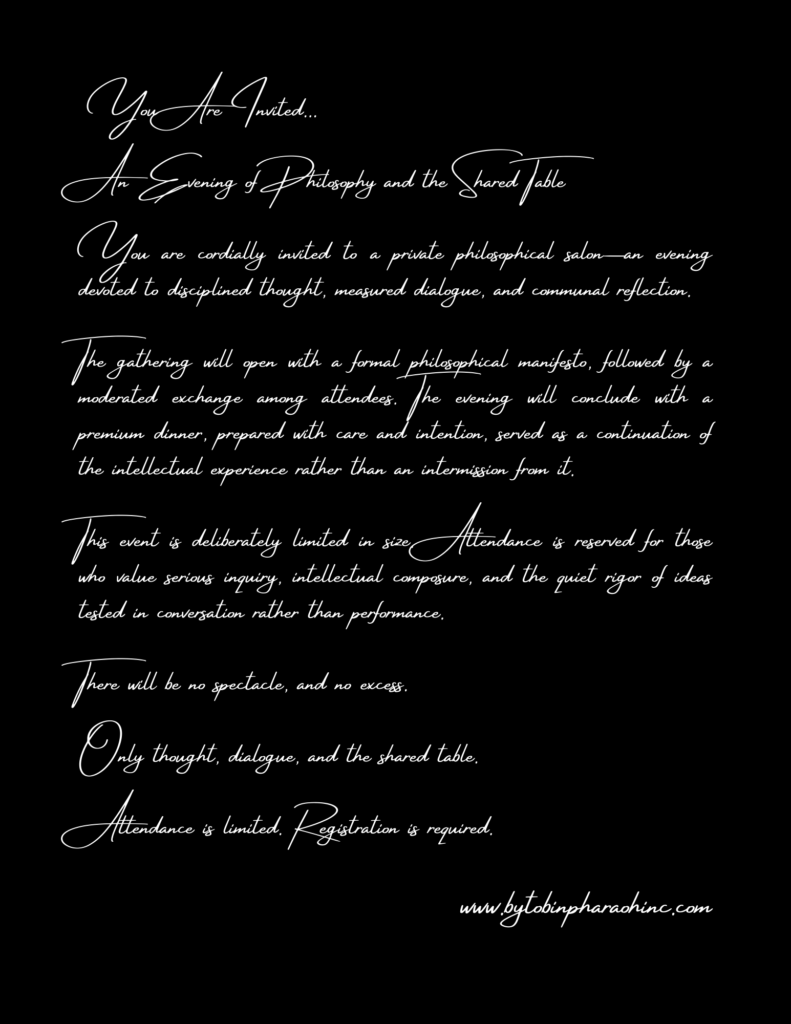 You Are Invited...
An Evening of Philosophy and the Shared Table
You are cordially invited to a private philosophical salon—an evening
devoted to disciplined thought, measured dialogue, and communal reflection.
The gathering will open with a formal philosophical manifesto, followed by a
moderated exchange among attendees. The evening will conclude with a
premium dinner, prepared with care and intention, served as a continuation of
the intellectual experience rather than an intermission from it.
This event is deliberately limited in size. Attendance is reserved for those
who value serious inquiry, intellectual composure, and the quiet rigor of ideas
tested in conversation rather than performance.
There will be no spectacle, and no excess.
Only thought, dialogue, and the shared table.
Attendance is limited. Registration is required.
www.bytobinpharaohinc.com